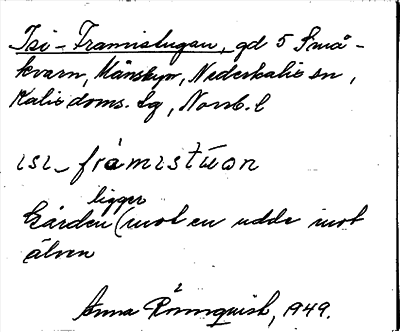 Isi-Framistugan, gd 5 Små-
kvarn, Månsbyn, Nederkalix sn,
Kalix doms. lg, Norrb. l
ɪsɪ_ framɪstuɑn
ligger
Gården (mot en udde mot
älven
Anna Rönnquist, 1949.